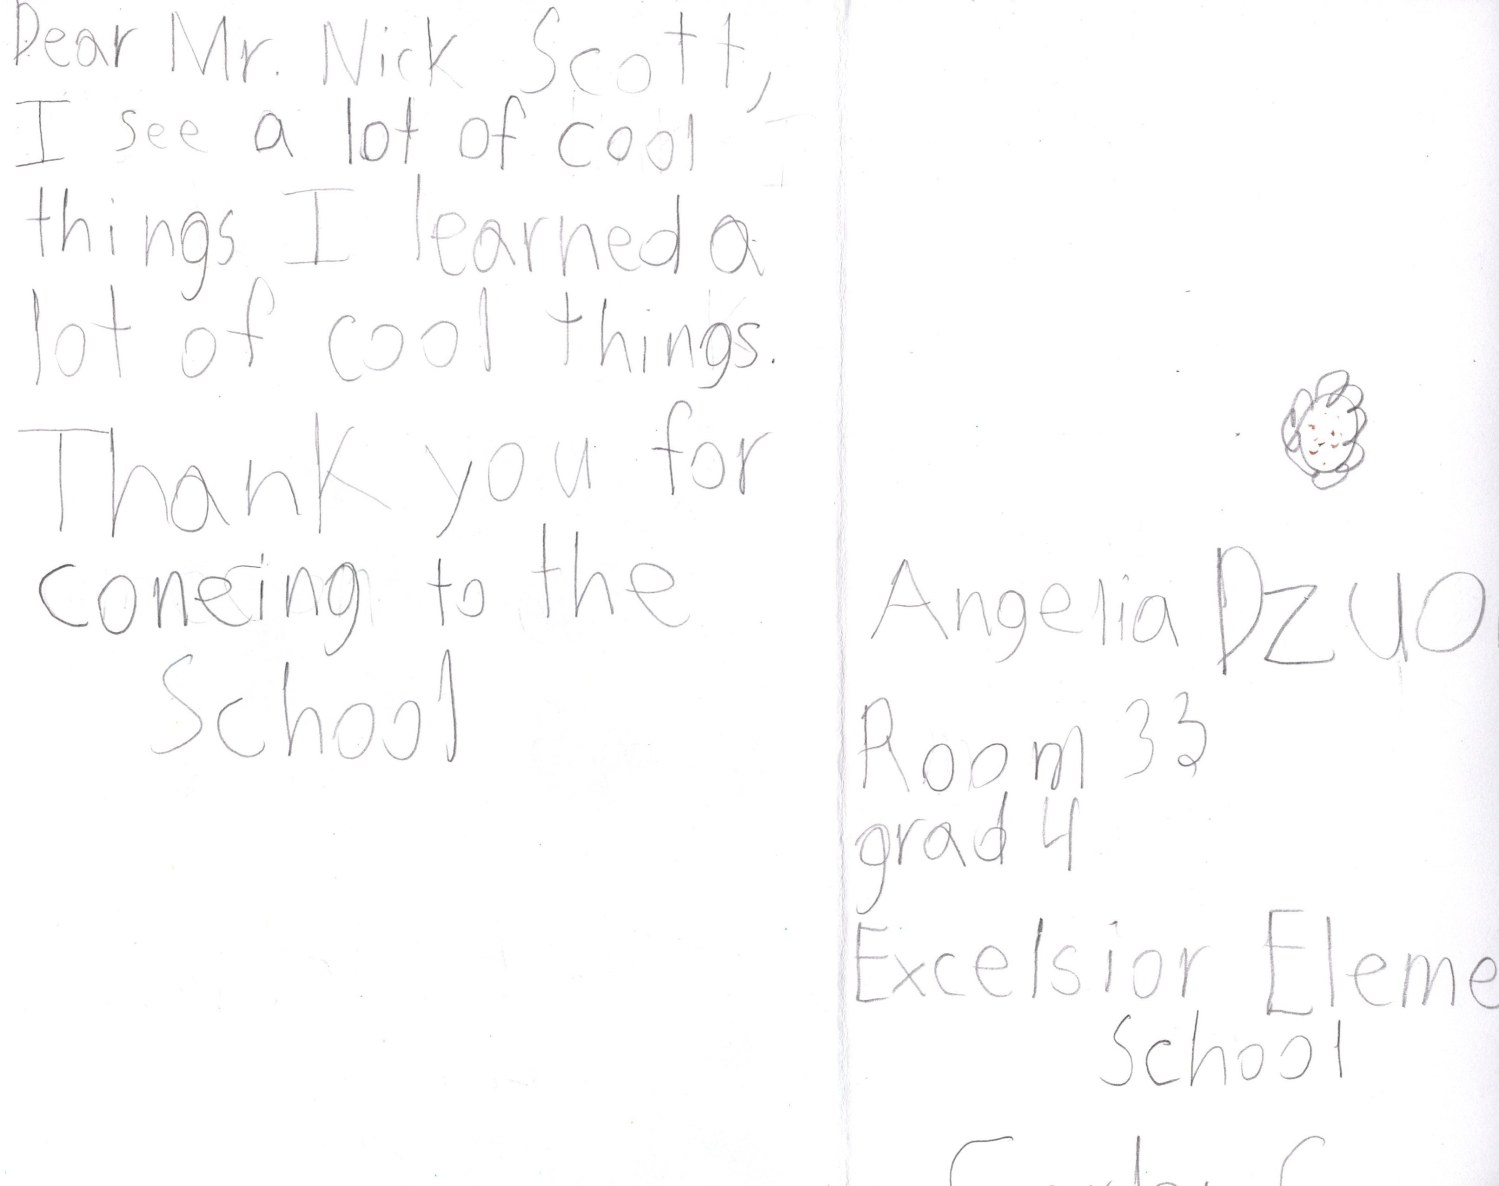 Dear Mr. Nick Scott,
I see a lot of cool
things I learned a
lot of cool things.
Thank you for
coneing to the
School
Angelia Dzuo
Room 33
grad 4
Excelsior Eleme
School